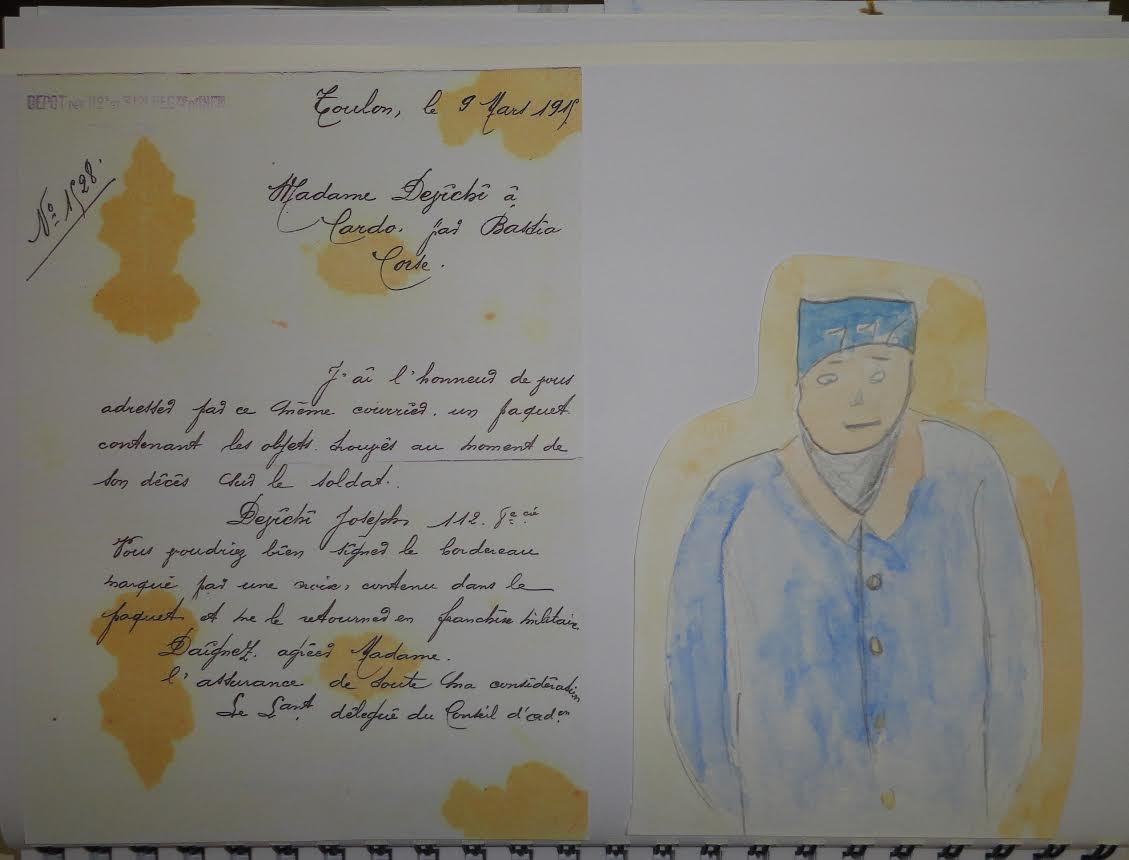 DEPOT DES 112e et 312e REG
Toulon, le 9 Mars 1915
No 1528.
Madame Dejichi à
Cardo. par Bastia
Corse.
J'ai l'honneur de vous
adresser par ce même courrier. un paquet
contenant les objets. trouvés au moment de
son décès sur le soldat.
Dejichi Joseph 112. cie
Vous voudriez bien signer le bordereau
marqué par une croix, contenu dans le
paquet et me le retourner en franchise militaire
Daignez. agréer Madame.
l'assurance de toute ma considération
Le Lant délégué du Conseil d'adon